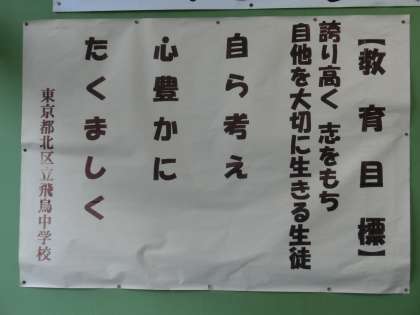 【教育目標】
誇り高く 志をもち
自他を大切に生きる生徒
自ら考え
心豊かに
たくましく
東京都北区立飛鳥中学校